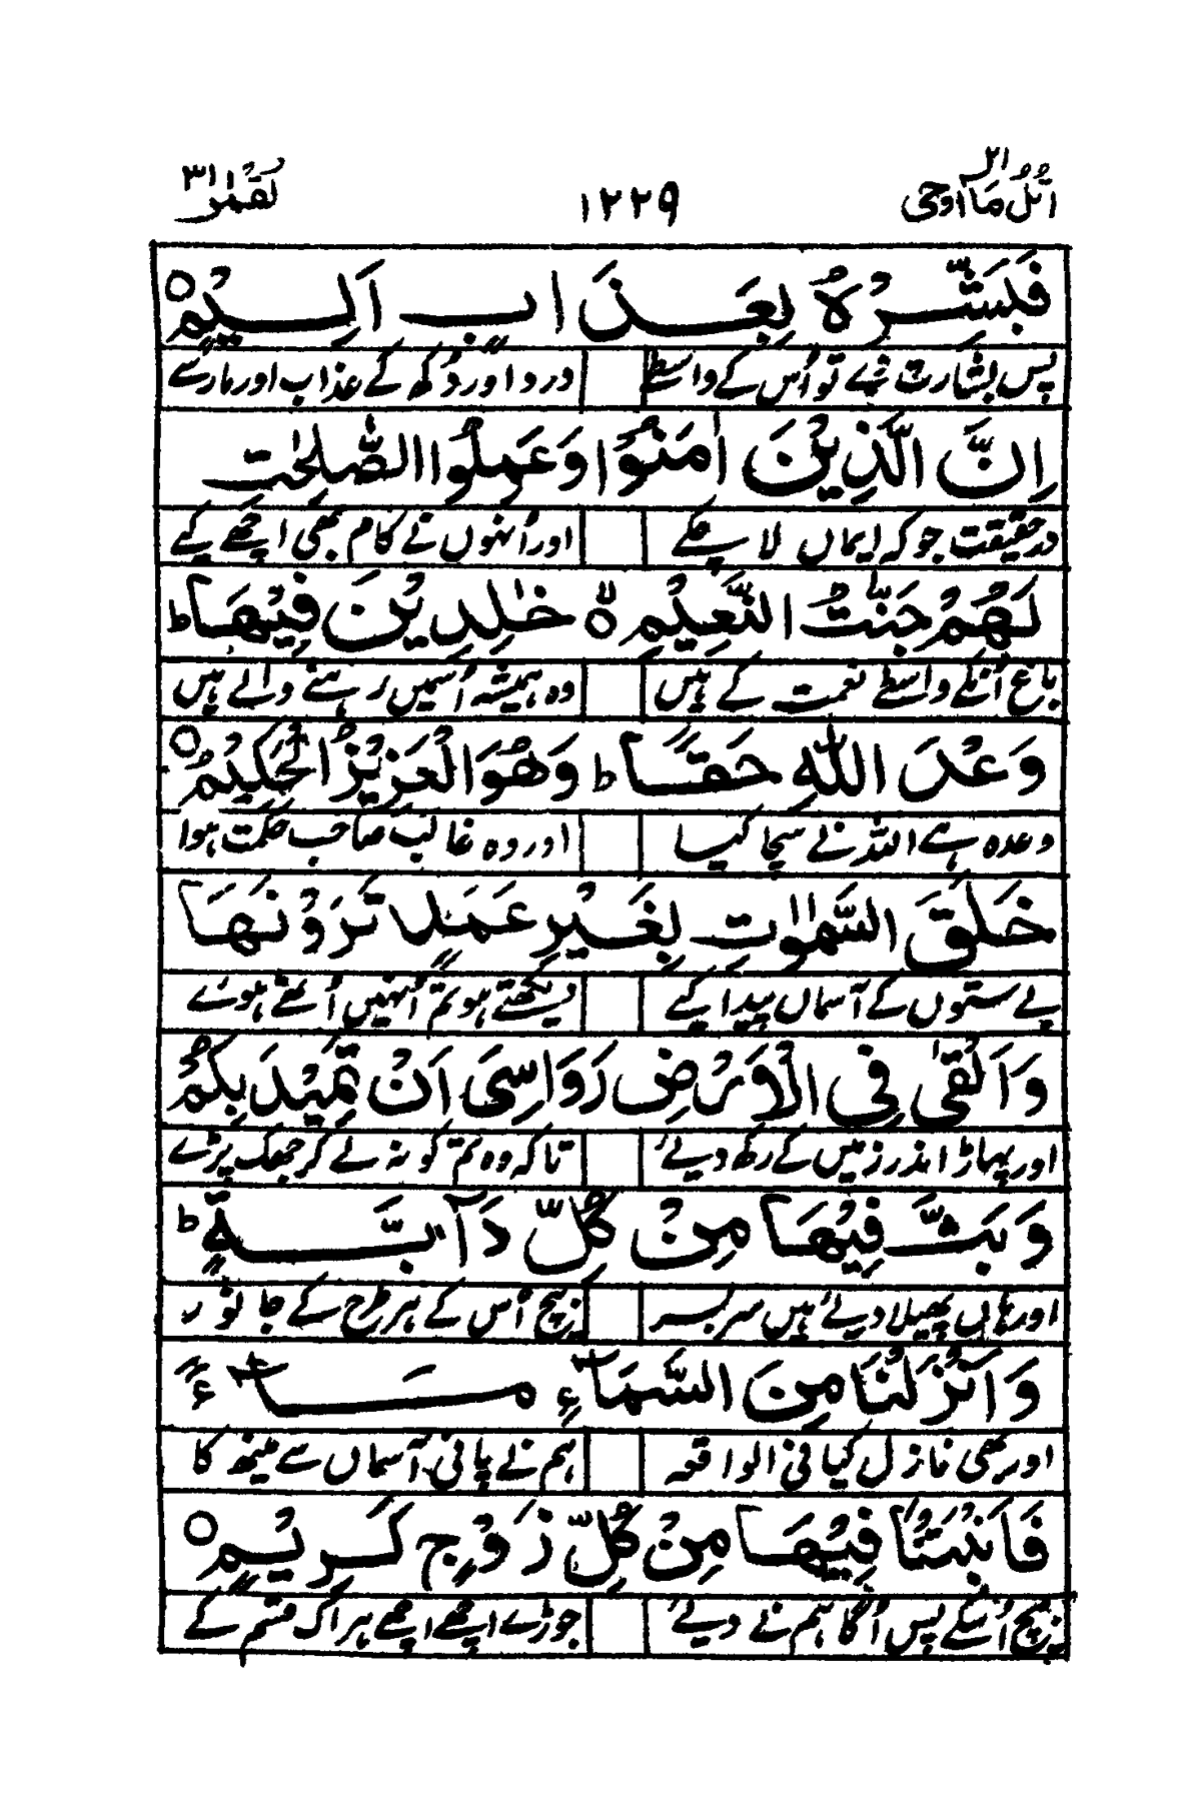 اتل ما اوحی ۲۱ ۱۲۲۹ لقمٰن ۳۱
فَبَشِّرْهُ بِعَذَابٍ اَلِیْمٍ ○
پس بشارت دے تو اُس کے واسطے درد اور دُکھ کے عذاب اور مار سے
اِنَّ الَّذِیْنَ اٰمَنُوْا وَعَمِلُوا الصّٰلِحٰتِ
در حقیقت جو کہ ایماں لا چکے اور اُنہوں نے کام بھی اچھے کیے
لَهُمْ جَنّٰتُ النَّعِیْمِ ۙ خٰلِدِیْنَ فِیْهَا ط
باغ اُنکے واسطے نعمت کے ہیں وہ ہمیشہ اُسمیں رہنے والے ہیں
وَعْدَ اللّٰهِ حَقًّا ط وَهُوَ الْعَزِیْزُ الْحَكِیْمُ ○
وعدہ ہے اللہ نے سچا کیا اور وہ غالب صاحب حکمت ہوا
خَلَقَ السَّمٰوٰتِ بِغَیْرِ عَمَدٍ تَرَوْنَهَا
بے ستونوں کے آسماں پیدا کیے دیکھتے ہو تم اُنہیں اُٹھے ہوئے
وَاَلْقٰی فِی الْاَرْضِ رَوَاسِیَ اَنْ تَمِیْدَ بِكُمْ
اور پہاڑ اندر زمیں کے رکھ دیئے تاکہ وہ تم کو نہ لے کر جھک پڑے
وَبَثَّ فِیْهَا مِنْ كُلِّ دَآبَّةٍ ط
اور پھیلا دیئے ہیں سر بسر بیچ اُس کے ہر طرح کے جانور
وَاَنْزَلْنَا مِنَ السَّمَآءِ مَآءً
اور بھی نازل کیا فی الواقعہ ہم نے پانی آسماں سے مینھ کا
فَاَنْۢبَتْنَا فِیْهَا مِنْ كُلِّ زَوْجٍ كَرِیْمٍ ○
بیچ اُسکے پس اُگا ہم نے دیئے جوڑے اچھے اچھے ہر اک قسم کے